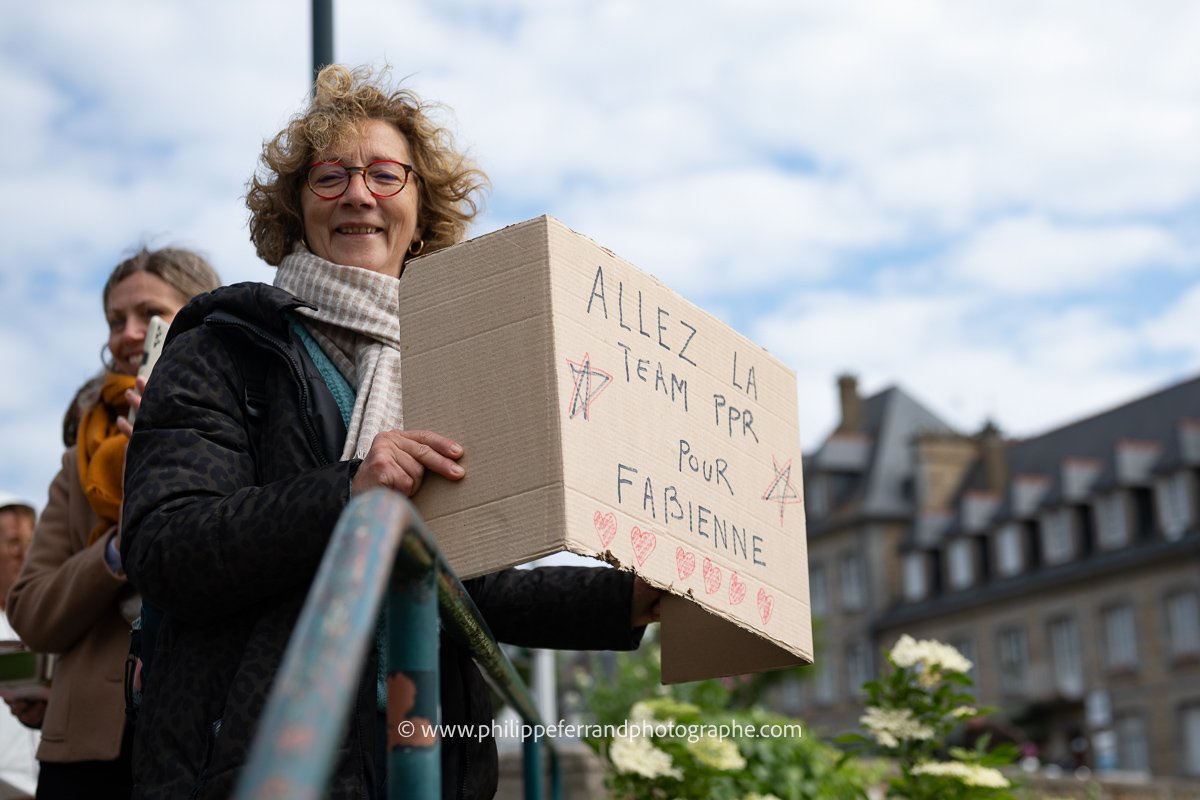 ALLEZ LA
TEAM PPR
POUR
FABIENNE
© www.philippeferrandphotographe.com